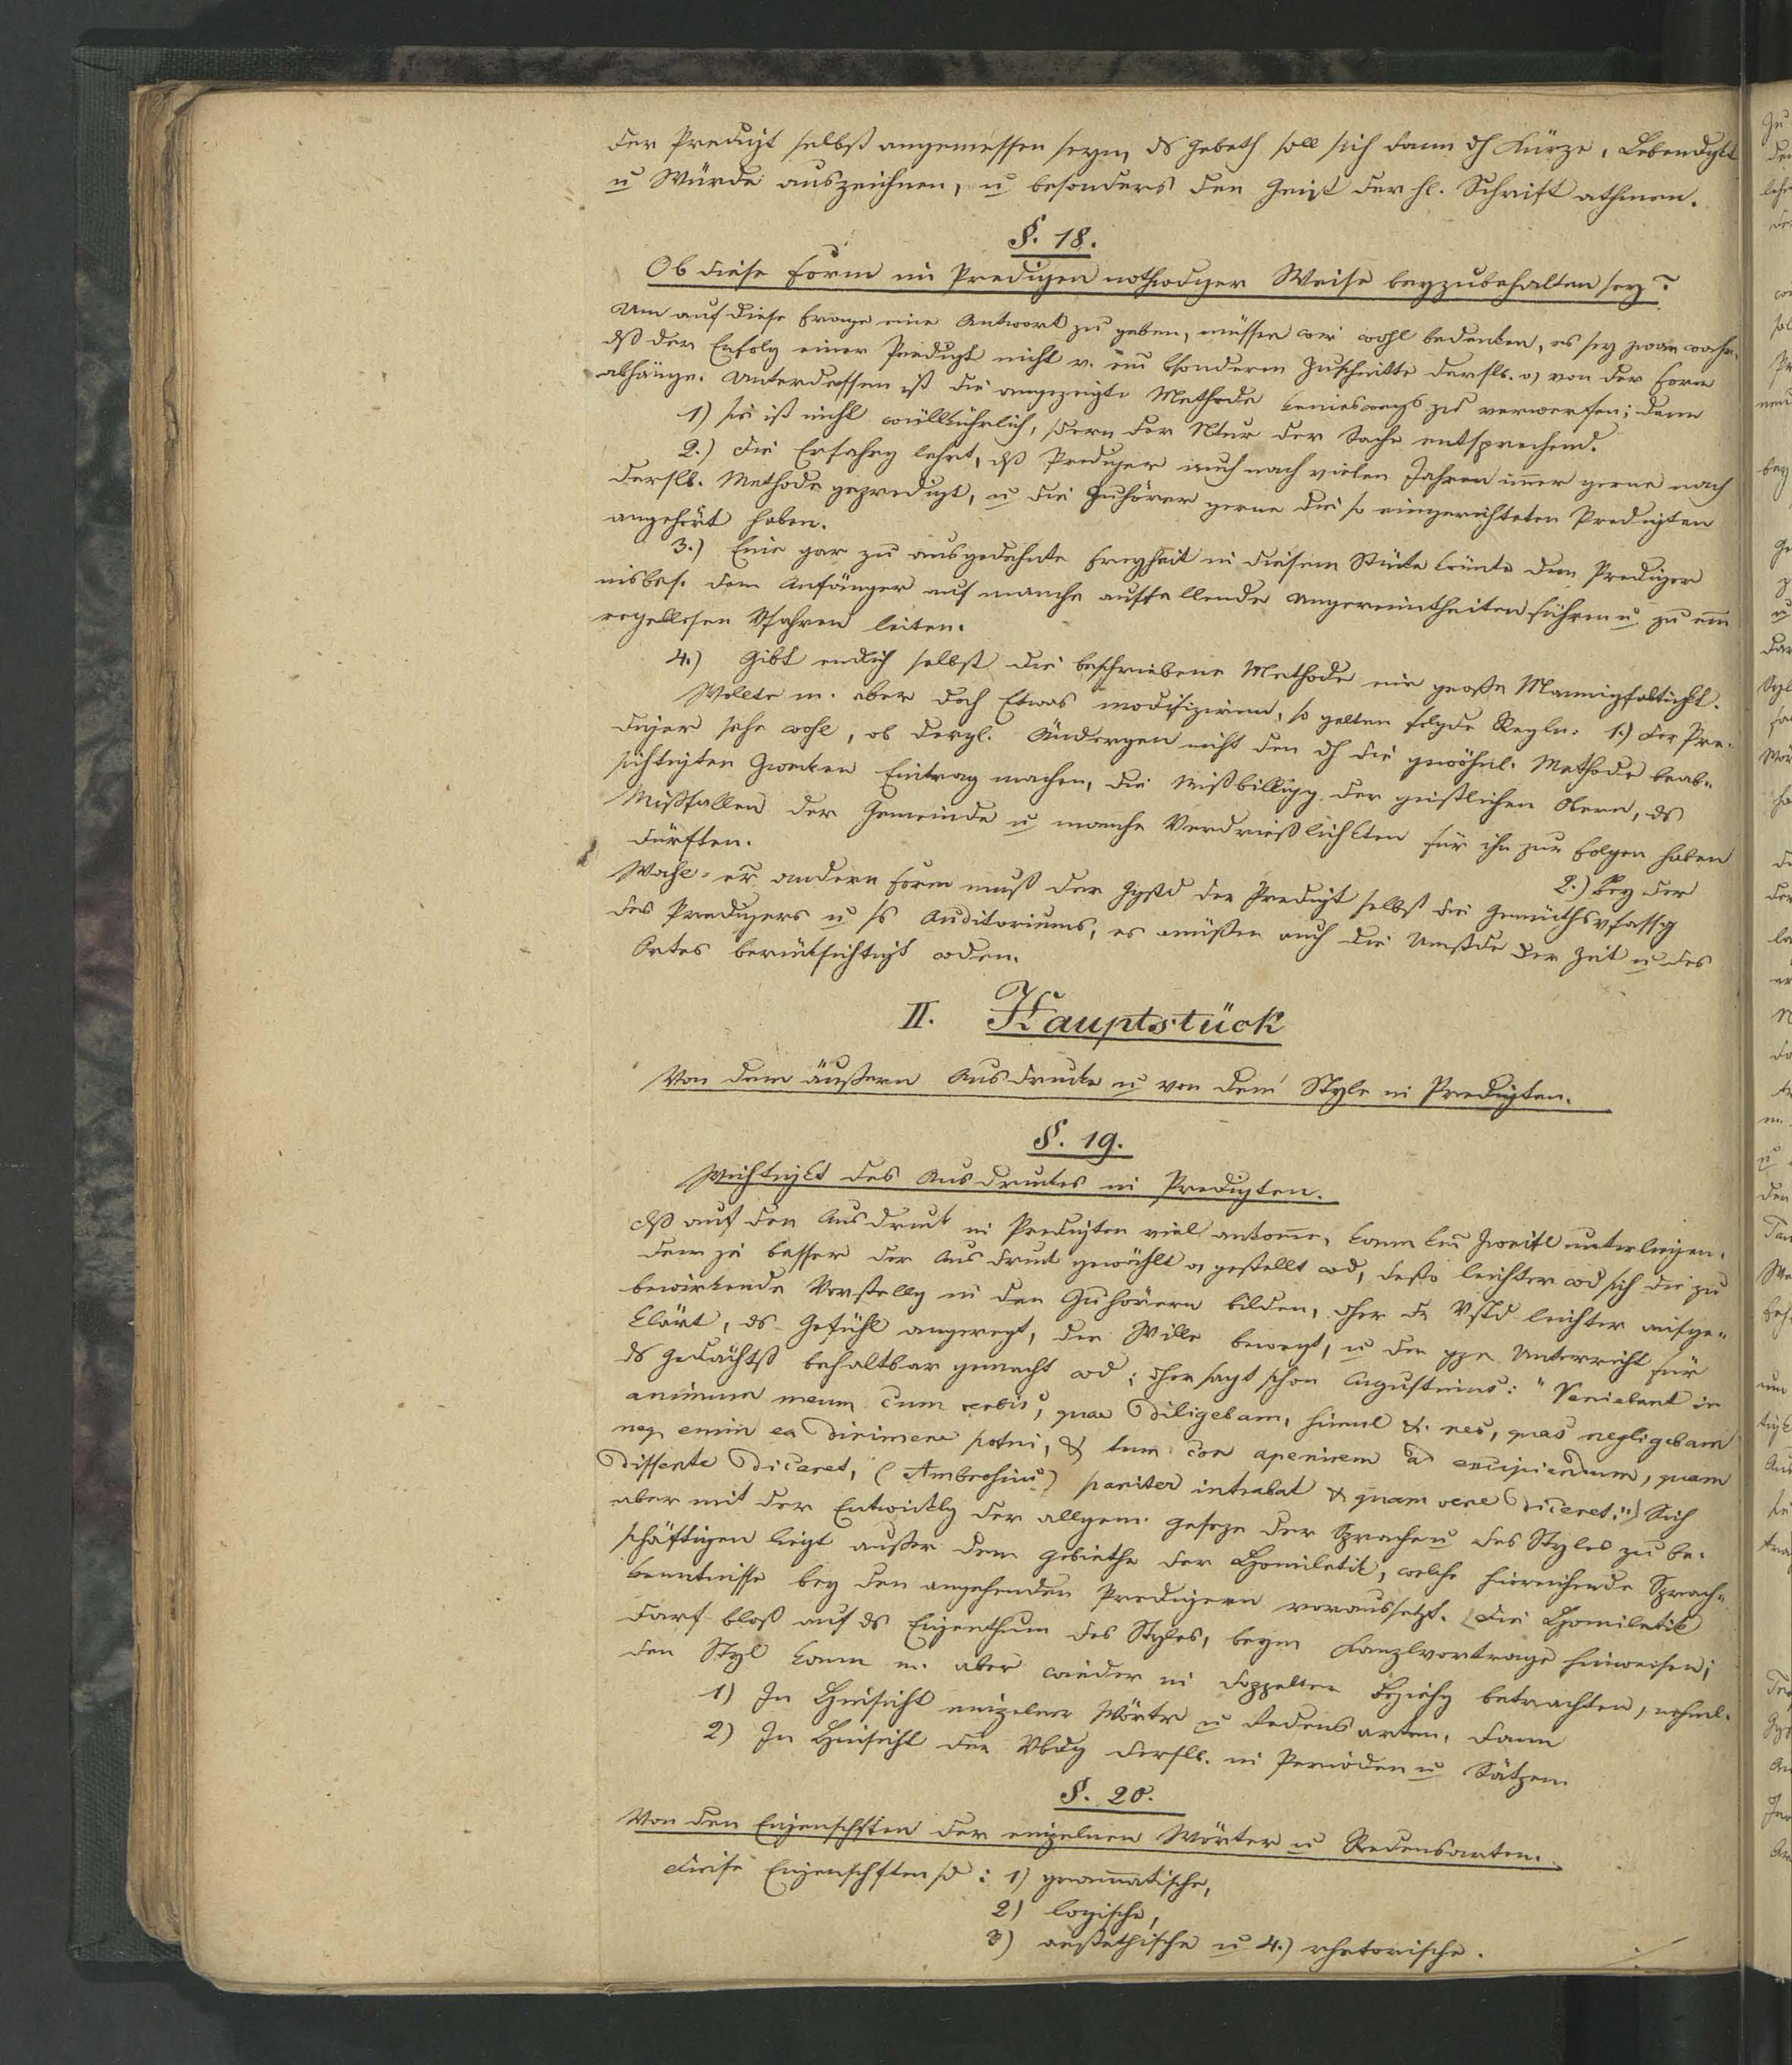 der Predigt selbst angemessen seyn, ds Gebeth soll sich dann dh Kürze, Lebendgkt
u Würde auszeichnen, u besonders den Geist der hl. Schrift athmen.
§. 18.
Ob diese Form im Predigen nothwdger Weise beyzubehalten sey?
Um auf diese Frage eine Antwort zu geben, müssen wir wohl bedenken, es sey zwar wahr,
dß der Erfolg einer Predigt nicht v. einem bsonderen Zuschnitte derslb. o von der Form
abhänge. Unterdessen ist die angezeigte Methode keineswegs zu verwerfen; denn
1) sie ist nicht willkührlich, sdern der Ntur der Sache entsprechend.
2.) Die Erfahrg lehrt, dß Prediger auch nach vielen Jahren immer gerne nach
derslb. Methode gepredigt, u die Zuhörer gerne die so eingerichteten Predigten
angehört haben.
3.) Eine gar zu ausgedehnte Freyheit in diesem Stücke könnte den Prediger
insbes. den Anfänger auf manche auffallende Ungereimtheiten führen u zu einem
regellosen Vfahren leiten.
4.) Gibt endlich selbst die beschriebene Methode eine große Mannigfaltigkt.
Wollte m. aber doch Etwas modifiziren, so gelten folgde Regln: 1.) Der Pre-
diger sehe wohl, ob dergl. Ändergen nicht den dh die gewöhnl. Methode beab-
sichtigten Zwecken Eintrag machen, die Mißbilligg der geistlichen Obern, ds
Mißfallen der Gemeinde u manche Verdrießlichkten für ihn zur Folgen haben
dürften.
2.) Bey der
Wahl er andern Form muß der Ggstd der Predigt selbst die Gemüthsvfassg
des Predigers u s Auditoriums, es müßen auch die Umstde der Zeit u des
Ortes berücksichtigt wden.
II. Hauptstück
Von dem äußern Ausdrucke u von dem Style in Predigten.
§. 19.
Wichtigkt des Ausdruckes in Predigten.
Dß auf den Ausdruck in Predigten viel ankomme, kann kein Zweifl unterliegen.
denn je besser der Ausdruck gewählt o gestellt wd, desto leichter wd sich die zu
bewirkende Vorstellg in den Zuhörern bilden, dher dr Vstd leichter aufge-
klärt, ds Gefühl angeregt, der Wille bewegt, u der gze Unterricht für
ds Gedächtß behaltbar gemacht wd; dher sagt schon Augustinus: "Veniebant in
animum meum cum verbis, quae diligebam, simul & res, quas negligebam
neq enim ea dirimere potui, & dum cor aperirem ad excipiendum, quam
disserte diceret, (Ambrosius) pariter intrabat & quam vere diceret;") Sich
aber mit der Entwicklg der allgem. Geseze der Sprache u des Styles zu be-
schäftigen liegt außer dem Gebiethe der Homiletik, welche hinreichende Sprach-
kenntnisse bey den angehenden Predigern voraussetzt. Die Homiletik
darf bloß auf ds Eigenthum des Styles, beym Kanzlvortrage hinweisen;
den Styl kann m. aber wieder in doppelter Beziehg betrachten, nehml.
1) In Hinsicht einzelner Wörter u Redensarten, dann
2) In Hinsicht der Vbdg derslb. in Perioden u Sätzen.
§. 20.
Von den Eigenschften der einzelnen Wörter u Redensarten.
Diese Eigenschften sd: 1) grammatische,
2) logische,
3) aesthetische u 4.) rhetorische.